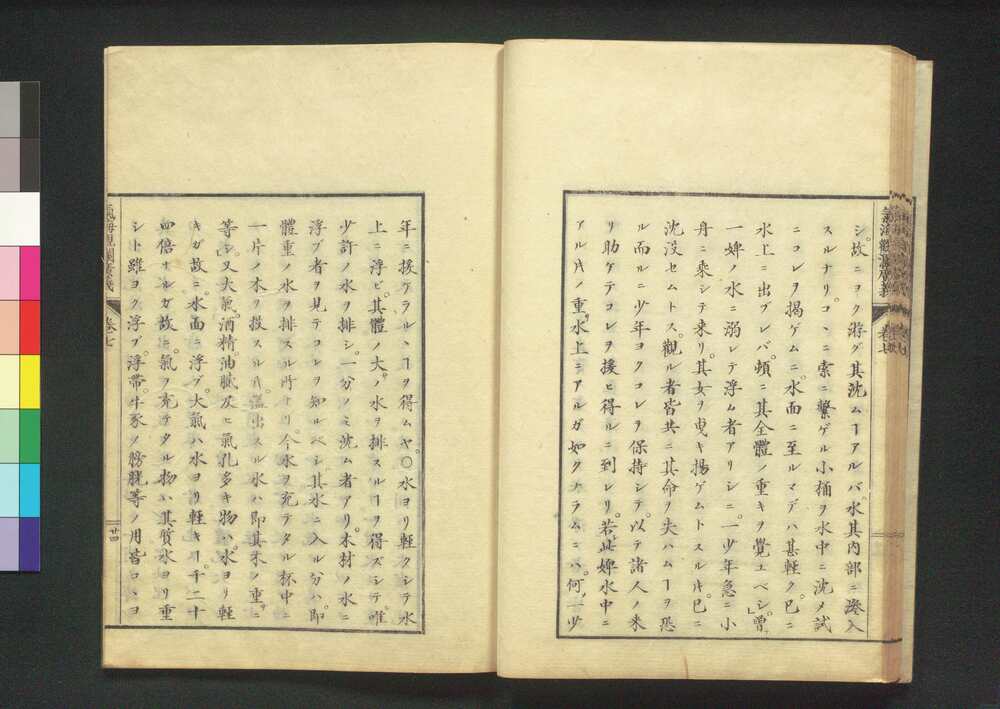 氣海觀瀾廣義 卷七
シ。故ニヨク游グ其沈ムヿアルバ。水其内部ニ滲入
スルナリ。コヽニ索ニ繫ゲル小桶ヲ水中ニ沈メ試
ニコレヲ揭ゲムニ。水面ニ至ルマデハ甚輕ク。已ニ
水上ニ出ブレバ。頓ニ其全體ノ重キヲ覺ユベシ。曾
一婢ノ水ニ溺レテ浮ム者アリシニ。一少年急ニ小
舟ニ乘シテ來リ。其女ヲ曳キ揚ゲムトスル𪜈。已ニ
沈沒セムトス。觀ル者皆共ニ其命ヲ失ハムヿヲ恐
ル而ルニ少年ヨクコレヲ保持シテ。以テ諸人ノ來
リ助ケテコレヲ援ヒ得ルニ到レリ。若此婢水中ニ
アル𪜈ノ重。水上ニアルガ如クナラムニハ。何一少
年ニ援ケラルヽヿヲ得ムヤ。〇水ヨリ輕クシテ水
上ニ浮ビ。其體ノ大。水ヲ排スルヿヲ得ズシテ。唯
少許ノ水ヲ排シ。一分ノミ沈ム者アリ。木材ノ水ニ
浮ブ者ヲ見テコレヲ知ルベシ。其水ニ入ル分ハ。即
體重ノ水ヲ排スル所ナリ。今水ヲ充テタル杯中ニ
一片ノ木ヲ投スル𪜈。溢出スル水ハ即其木ノ重ニ
等シ。又大氣。酒精。油膩及ヒ氣孔多キ物ハ。水ヨリ輕
キガ故ニ。水面ニ浮ブ。大氣ハ水ヨリ輕キヿ。千二十
四倍ナルガ故ニ。氣ヲ充テタル物ハ其質水ヨリ重
シト雖ヨク浮ブ。浮帶。牛豕ノ膀胱等ノ用。皆コヽヨ
氣海觀瀾廣義 卷七 廿四